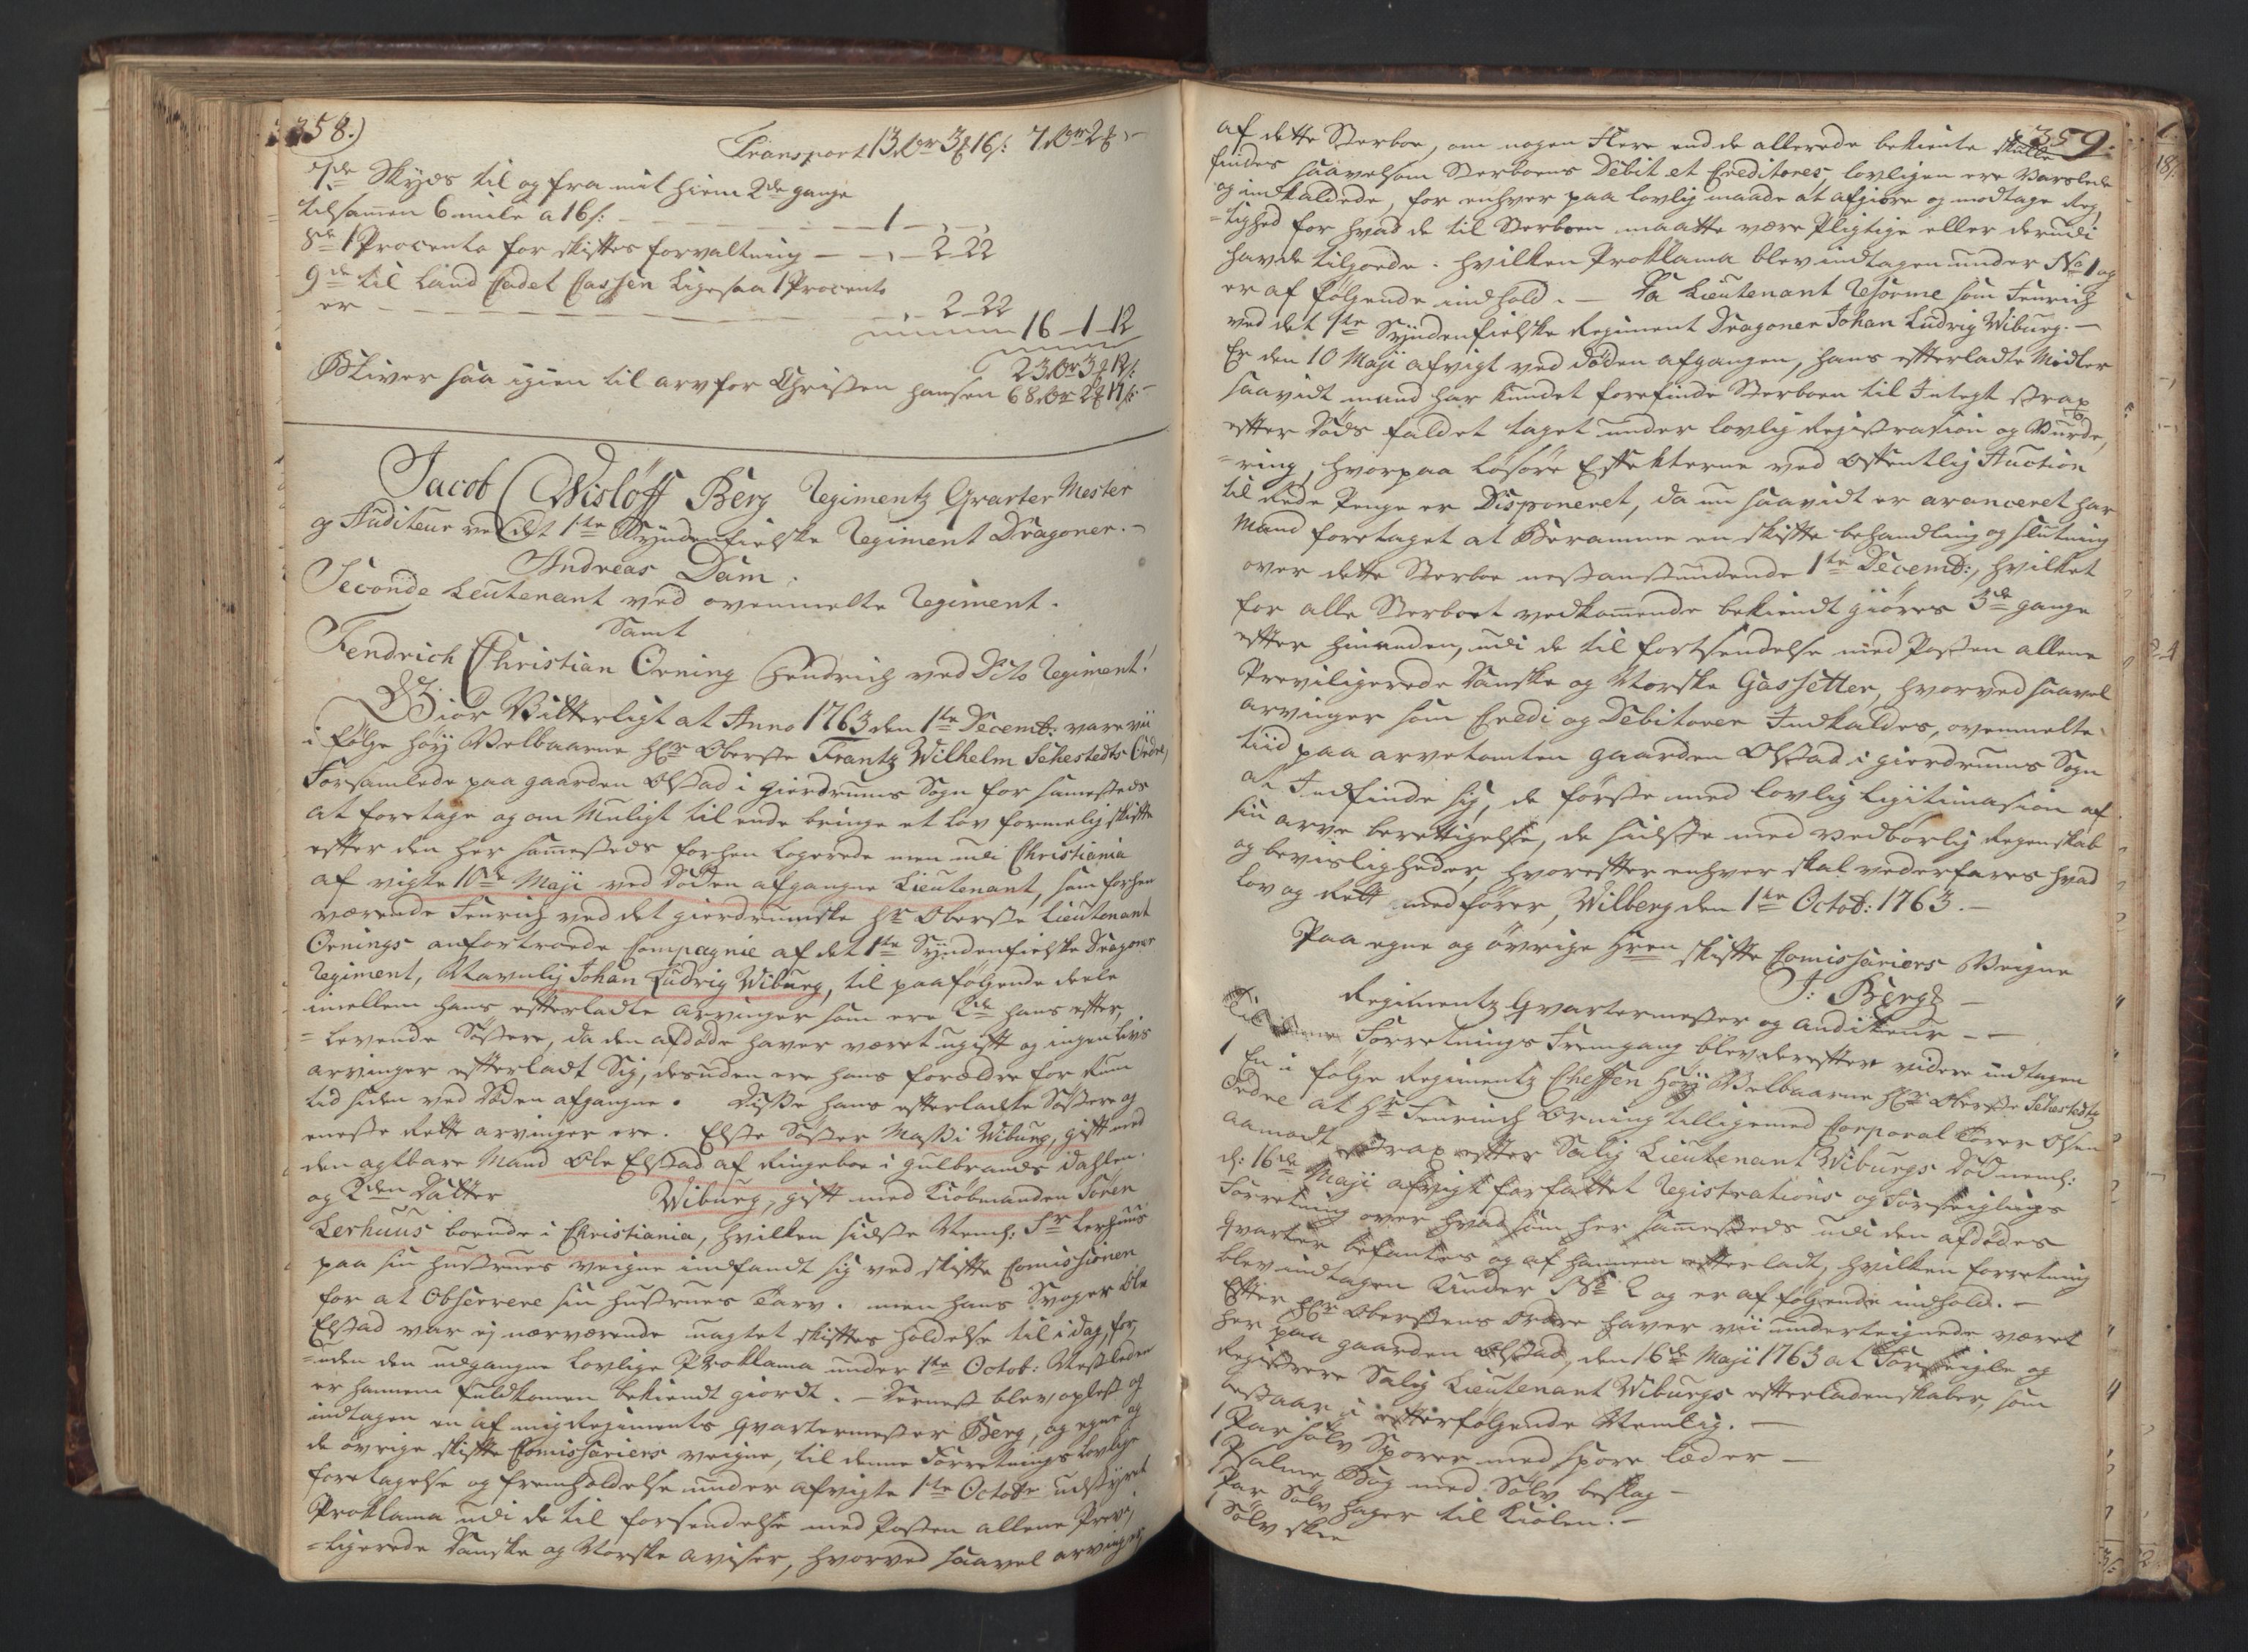 358.)
Transport 13 Rdr 3 ß 16 s: 7 Rdr 2 ß
7de Skyds til og fra mit hiem 2de gange
tilsammen 6 mile a 16 s: — 1 —
8de 1 Procento for skiftes forvaltning — 2 22
9de til Land Cadet Cassen ligesaa 1 Procento
er — 2 22
16 — 1 — 12
23 Rdr 3 ß 12 s:
Bliver saa igien til arv for Christen Hansen 68 Rdr
Jacob Wislöff Berg Regimentz Qvarter Mester
og Auditeur ved det 1ste Syndenfielske Regiment Dragoner.
Andreas Dam
Seconde Leutenant ved ovenmelte Regiment.
Samt
Fendrich Christian Örning Fendrich ved Dito Regiment!
Giör Vitterligt at Anno 1763 den 1te Decemb: vare vii
i fölge Höÿ Velbaarne Hr Oberste Frantz Wilhelm Sehestedts Ordre
forsamlede paa gaarden Olstad i Gierdrums Sogn for sammesteds
at foretage og om Muligt til ende bringe et lov formelig skifte
efter den her sammesteds forhen logerede men udi Christiania
af vigte 10de Maji ved Döden afgangne Lieutenant, som forhen
værende Fenrich ved det gierdrumske Hr Oberste Lieutenant
Örnings anfortroede Compagnie af det 1te Syndenfielske Dragoner
Regiment, Navnlig Johan Ludvig Wiburg, til paafölgende deele
imellem hans efterladte arvinger som ere 2de hans efter
=levende Söstere, da den afdöde haver været ugift og ingen livs
arvinger efterladt Sig, desuden ere hans forældre for rum
tid siden ved Döden afgangne. Disse hans efterladte Söstere og
eneste rette arvinger ere. Elste Söster Massi Wiburg, gift med
den agtbare Mand Ole Elstad af Ringeboe i Gulbrands Dahlen.
og 2den Dätter Wiburg, gift med Kiöbmanden Sören
Lerhuus boende i Christiania, hvilken sidste Neml: Sr Lerhuus
paa sin hustrues veigne indfandt sig ved skifte Comissionen
for at Observere sin hustrues Tarv. men hans Svoger Ole
Elstad var ej nærværende uagtet skiftes holdelse til i dag, for
=uden den udgangne lovlige Proklama under 1te Octob: Nestleden
er hannem fuldkommen bekiendt giordt. — Dernest blev oplest og
indtagen en af mig Regiments Qvartermester Berg, og egne og
de övrige skifte Comissariers veigne, til denne Forretnings lovlige
foretagelse og fremholdelse under afvigte 1te Octobr udstÿret
Proklama udi de til forsendelse med Posten allene Previ
=ligerede Danske og Norske aviser, hvorved saavel arvinger
359.
af dette Sterboe, om nogen Flere end de allerede bekiente skulle
findes saavelsom Sterboens Debit et Creditores, lovligen ere Varslede
og indkaldede, for enhver paa lovlig maade at afgiöre og modtage Rig
=tighed for hvad de til Sterboen maatte være Pligtige eller derudi
havde tilgoede. Hvilken Proklama blev indtagen under No 1 og
er af fölgende indhold. — Da Lieutenant Reforme som Fenrich
ved det 1te Syndenfielske Regiment Dragoner Johan Ludvig Wiburg. —
Er den 10 Maji afvigt ved Döden afgangen, hans efterladte Midler
saavidt mand har kundet forefinde Sterboen til Integt strax
efter Döds faldet taget under lovlig Registration og Vurde,
=ring, hvorpaa lösöre Effekterne ved offentlig Auction
til rede Penge er Disponeret, da nu saavidt er avanceret har
Mand foretaget at Beramme en skifte behandling og slutning
over dette Sterboe nestanstundende 1te Decemb:, hvilket
for alle Sterboet vedkommende bekiendt giöres 3de gange
efter hinanden, udi de til fortsendelse med Posten allene
Previligerede Danske og Norske Gassetter, hvorved saavel
arvinger som Credi og Debitorer Indkaldes, ovenmelte
tiid paa arvetomten gaarden Olstad i Gierdrums Sogn
at Indfinde sig, de förste med lovlig Ligitimasion af
sin arve berettigelse, de sidste med vedbörlig Regenskab
og bevisligheder, hvorefter enhver skal vederfares hvad
lov og Rett medförer, Wilberg den 1te Octob: 1763. —
Paa egne og övrige Hren skifte Comissariers Veigne
J: Berg
Regimentz Qvartermester og auditeur —
Til denne Forretnings Fremgang blev derefter videre indtagen
1 En i fölge Regimentz Cheffen Höÿ Velbaarne Hr Oberste Sehestedtz
Ordre at Hr Fenrich Örning tilligemed Corporal Torer Olsen
anmodt strax efter Salig Lieutenant Wiburgs död neml:
d: 16de Maji afvigt forfattet Registrations og Forseiglings
Forretning over hvad som her sammesteds udi den afdödes
Qvarteer befantes og af hannem efterladt, hvilken forretning
blev indtagen under No 2 og er af fölgende indhold. —
Efter Hr Oberstens Ordre haver vii underteignede været
her paa gaarden Olstad, den 16de Maji 1763 at Forseigle og
Registrere Salig Lieutenant Wiburgs efterladenskaber, som
bestaar i efterfölgende Nemlig. —
1 Par sölv Sporer med spore læder —
1 Psalme Bog med Sölv beslag —
1 Par Sölv hager til Kiolen. —
1 Sölv skee